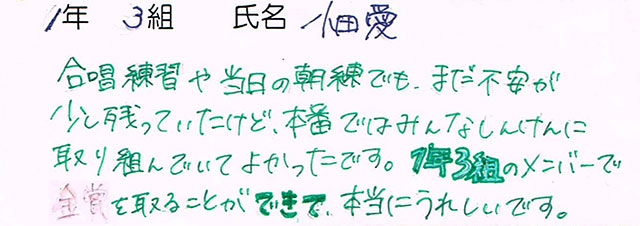 1年 3組 氏名 畑愛
合唱練習や当日の朝練でも、まだ不安が
少し残っていたけど、本番ではみんなしんけんに
取り組んでいてよかったです。1年3組のメンバーで
金賞を取ることができて、本当にうれしいです。